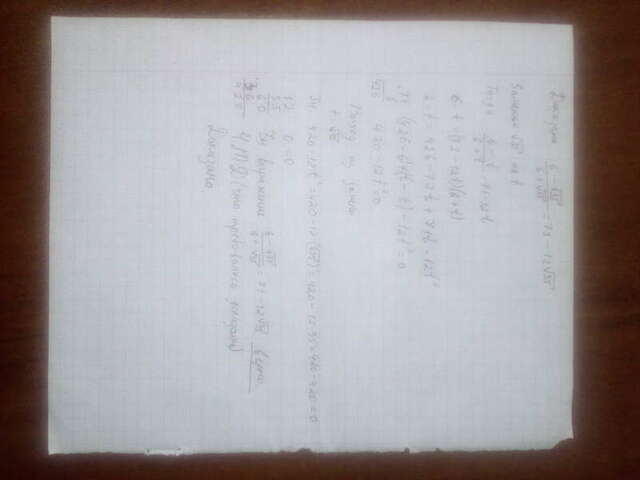 Доказать (6-√35)/(6+√35) = 71-12√35
Заменим √35 на t
Тогда (6-t)/(6+t) = 71-12t
6-t = (71-12t)(6+t)
6-t = 426-72t+71t-12t²
71 (426-6)+(t-t)-12t²=0
6
426 420-12t²=0
Выход из замены
t=√35
Зн. 420-12t²=420-12·(√35)²=420-12·35=420-420=0
12 0=0
35
60 Зн. выражение (6-√35)/(6+√35) = 71-12√35 верно.
36
420 ЧТД (что требовалось доказать)
Доказано